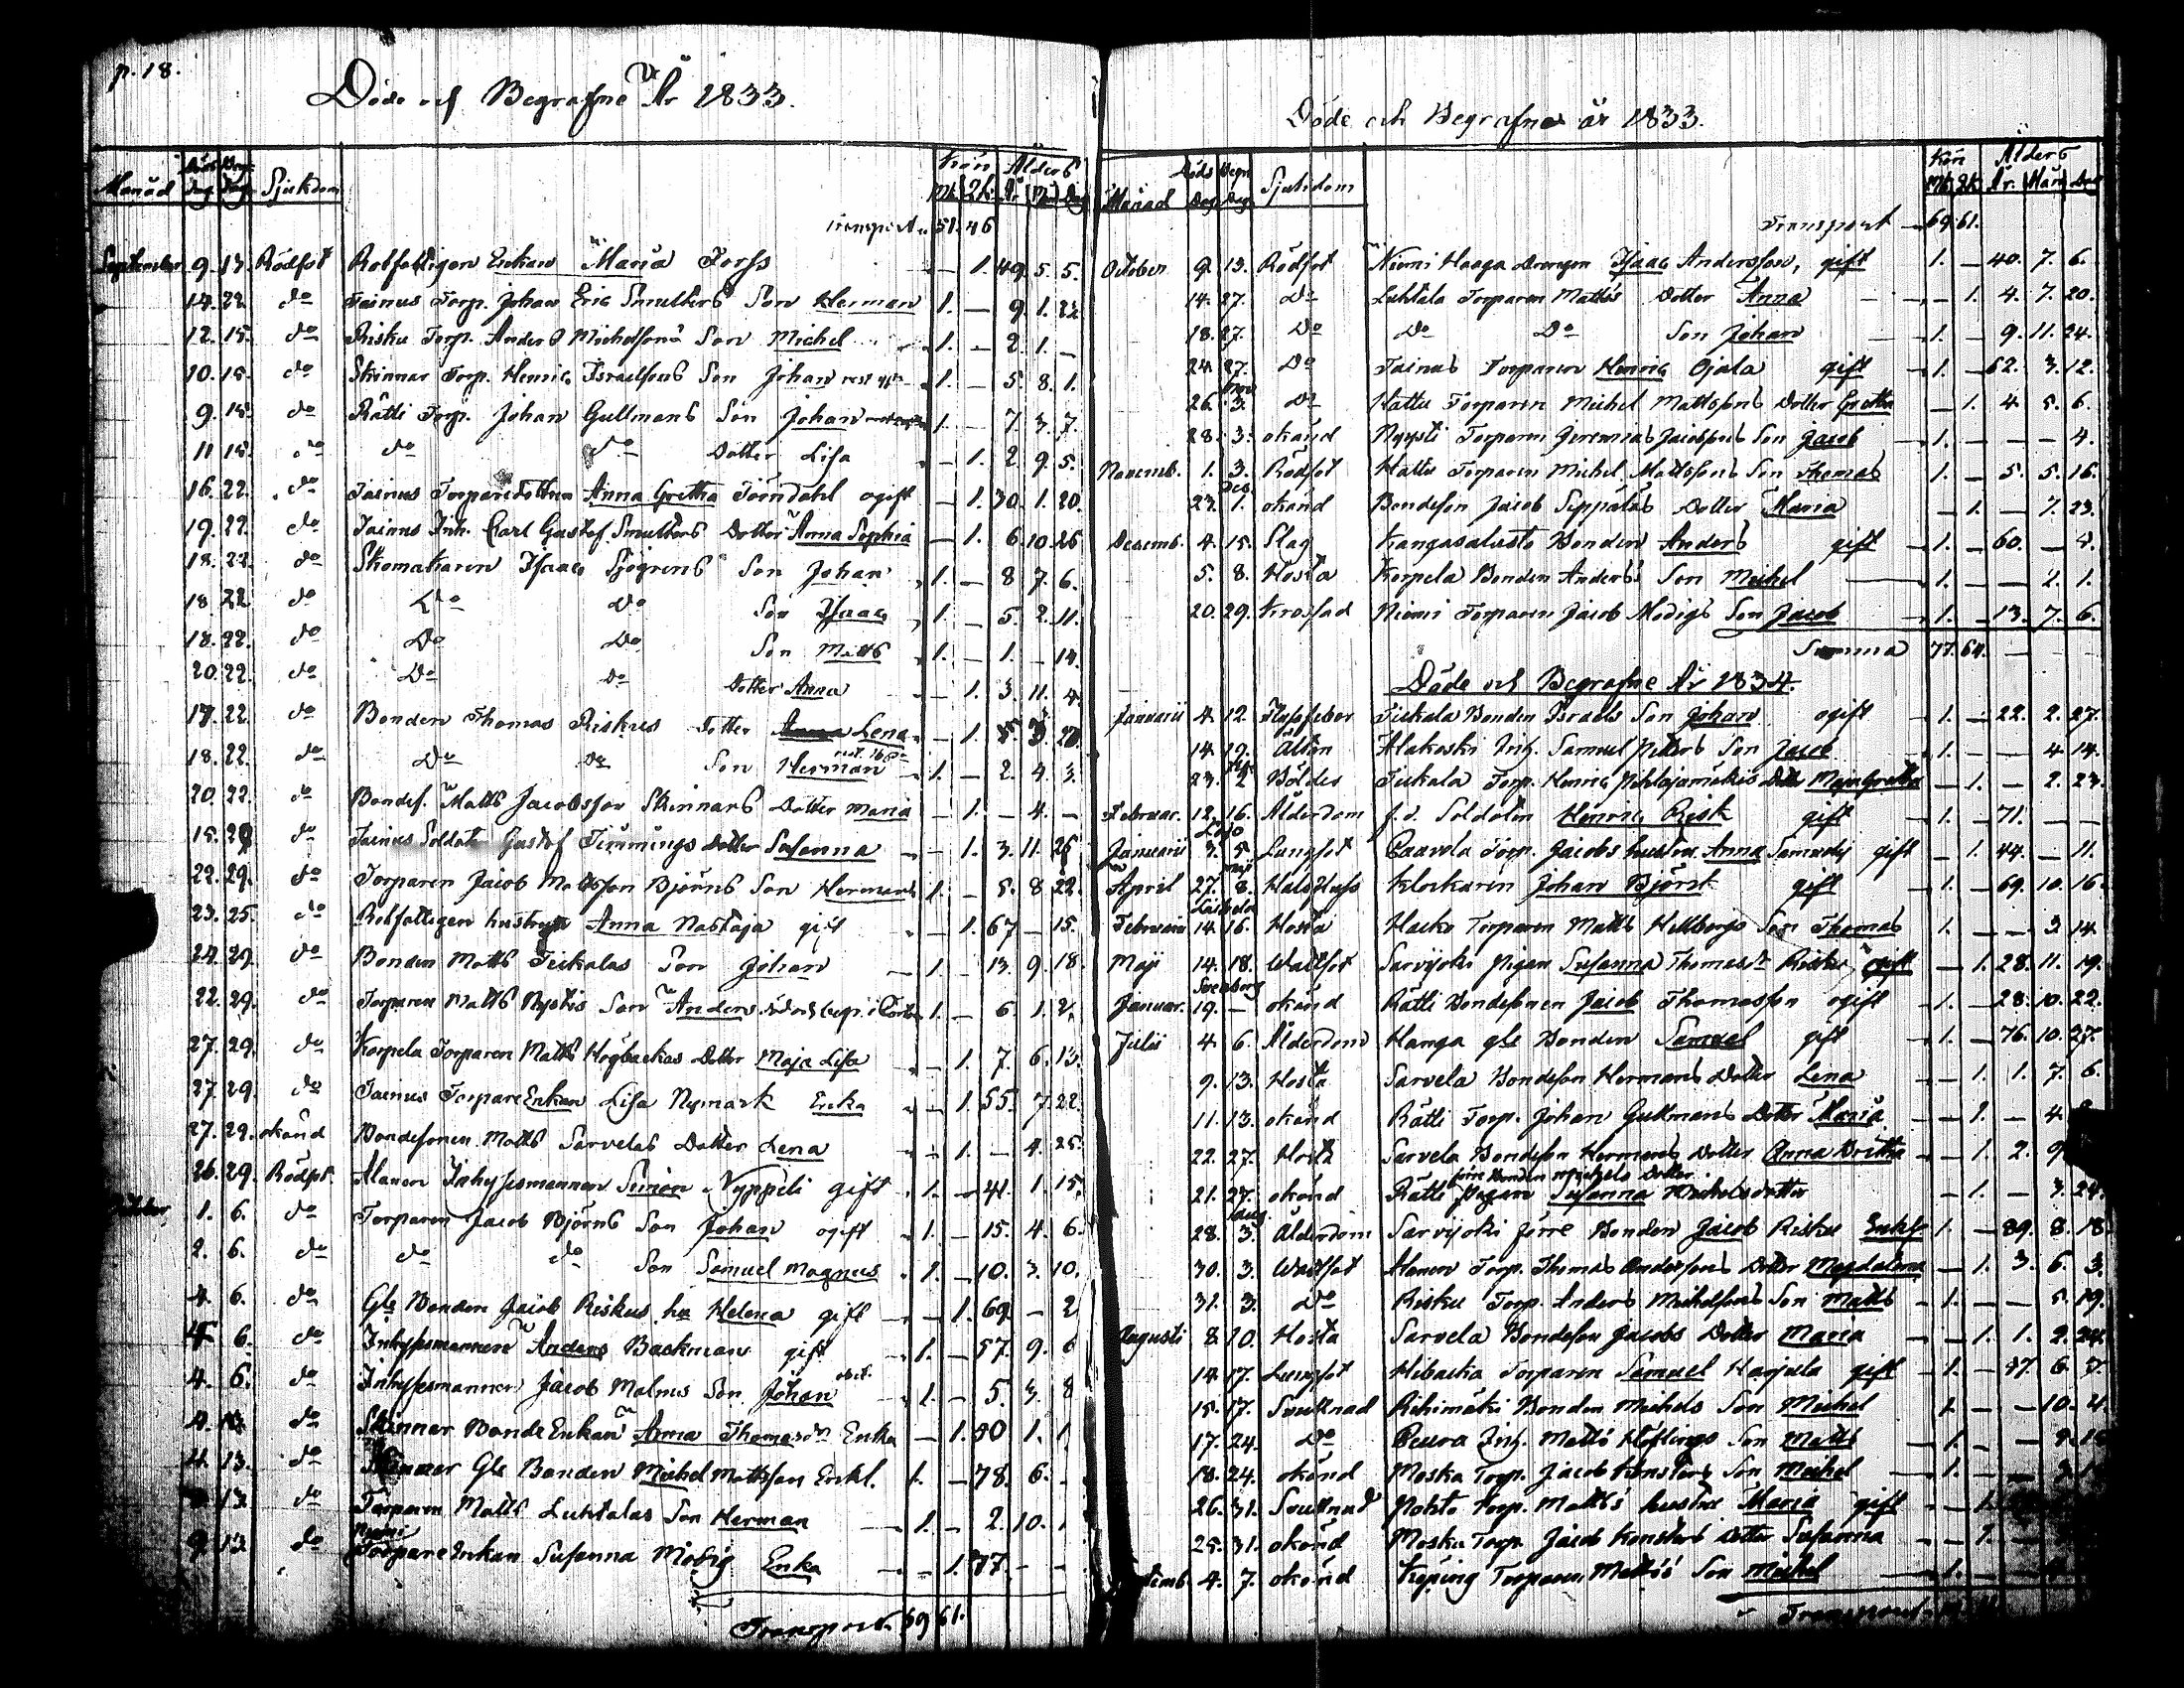 p. 18.
Döde och Begrafne År 1833.
Månad Döds Dag Begr. Dag Sjukdom Kön Mk. Qk. Ålder År Mån Dag
Transport 51. 46
September 9. 13. Rödsot Rotfattigen Enkan Maria Forss 1. 49. 5. 5.
14. 22. do Jainus Torp. Johan Eric Smulters Son Herman 1. — 9. 1. 22
12. 15. do Risku Torp. Anders Michelsons Son Michel 1. — 2. 1. —
10. 15. do Skinnar Torp. Henric Israelsons Son Johan 1. — 5. 8. 1.
9. 15. do Rätti Torp. Johan Gullmans Son Johan 1. — 7. 3. 7.
11 15. do do do Dotter Lisa — 1. 2. 9. 5.
16. 22. do Jainus Torparedottren Anna Gretha Törndahl ogift — 1. 30. 1. 20.
19. 22. do Jainus Inh. Carl Gustof Smulters Dotter Anna Sophia — 1. 6. 10. 26
18. 22. do Skomakaren Isaac Sjögrens Son Johan 1. — 8 7. 6.
18 22 do Do Do Son Isaac 1. — 5. 2. 11.
18. 22. do Do Do Son Matts 1. — 1. — 14.
20. 22. do Do Do Dotter Anna — 1. 3. 11. 4.
17. 22. do Bonden Thomas Riskus Dotter Lena — 1. 5. 3. 20.
18. 22. do Do Do Son Herman 1. — 2. 4. 3.
20. 22. do Bondes. Matts Jacobsson Skinnars Dotter Maria — 1. — 4. —
15. 29 do Jainus Soldat Gustof Timmings Dotter Susanna — 1. 3. 11. 26
22. 29. do Torparen Jacob Mattsson Björns Son Herman 1. — 5. 8 22.
23. 25. do Rotfattigen hustrun Anna Nastaja gift — 1. 67 — 15.
24. 29. do Bonden Matts Tiukalas Son Johan 1 — 13. 9. 18.
22. 29. do Torparen Matts Nystis Son Anders 1. — 6. 1. 2.
27. 29. do Korpela Torparen Matts Högbackas Dotter Maja Lisa — 1. 7. 6. 13.
27. 29. do Jainus Torpare Enkan Lisa Nymark Enka — 1. 55. 7. 22.
27. 29. okänd Bondesonen Matts Sarvelas Dotter Lena — 1. — 4. 25.
26. 29. Rödsot Alanen Inhysesmannen Simon Nyppeli gift 1. — 41. 1. 15.
1. 6. do Torparen Jacob Björns Son Johan ogift 1. — 15. 4. 6.
2. 6. do do do Son Samuel Magnus 1. — 10. 3. 10.
4. 6. do Gle Bonden Jacob Riskus hu Helena gift — 1. 69 — 2
6. do Inhysesmannen Anders Backman gift 1. — 57. 9. 6
4. 6. do Inhysesmannen Jacob Malms Son Johan 1 — 5. 3. 8
4. 13. do Skinnar Bonde Enkan Anna Thomasdr Enka — 1. 50 1. 1.
4. 13. do Skinnar Gle Bonden Michel Mattsson Enkl. 1. — 78. 6. —
13. do Torparen Matts Luhtalas Son Herman 1. — 2. 10. 1
9. 13. do Niemi Torpare Enkan Susanna Modig Enka — 1. 77 — —
Transport 69 61.
Döde och Begrafne år 1833.
Månad Döds Dag Begr. Dag Sjukdom Kön Mk. Qk. Ålder År. Mån Dag
Transport — 69. 61.
October 9. 13. Rödsot Niemi Haaga Drengen Isaac Andersson, gift 1. — 40. 7. 6.
14. 27. Do Luhtala Torparen Matts's Dotter Anna — 1. 4. 7. 20.
18. 27. Do Do Do Son Johan 1. — 9. 11. 24.
24. 27. Do Jainus Torparen Henric Ojala gift 1. — 62. 3. 12.
26. Nov 3. Do Hattu Torparen Michel Mattsons Dotter Gretha — 1. 4. 5. 6.
28. 3. okänd Nyysti Torparen Jeremias Jacobsons Son Jacob 1. — — — 4.
Novemb. 1. 3. Rödsot Hattu Torparen Michel Mattsons Son Thomas 1. — 5. 5. 16.
23. Dec. 1. okänd Bondeson Jacob Seppäläs Dotter Maria — 1. — 7. 23.
Decemb. 4. 15. Slag Kangasalusto Bonden Anders gift 1. — 60. — 4.
5. 8. Hosta Korpela Bonden Anders's Son Michel 1. — — 2. 1.
20. 29. Krossad Niemi Torparen Jacob Modigs Son Jacob 1. — 13. 7. 6.
Summa 77. 64. —
Döde och Begrafne År 1834.
Januarii 4. 12. Flussfeber Tiukala Bonden Israels Son Johan ogift 1. — 22. 2. 27.
14. 19. Älten Alakoski Inh. Samuel Son Jacob 1. — — 4 14.
23. 2 Bölder Tiukala Torp. Henric Pohlajamäkis Dott Maja Gretha — 1. — 2. 23.
Februar. 12. 16. Ålderdom f.d. Soldaten Henric Rask gift 1. — 71. — —
Januarii 3. 5 Lungsot Paavola Torp. Jacobs hustru Anna Samuelsdr gift — 1. 44. — 11.
April 27. Maji 8. Halsfluss Klockaren Johan Björst gift 1. — 69. 10. 16.
Februarii 14. 16. Hosta Hacko Torparen Matts Hellbergs Son Thomas 1. — — 3. 14.
Maji 14. 18. Wattsot Sarvijoki Pigan Susanna Thomasdr Risku — 1. 28. 11. 19.
Januar. Sveaborg 19. — okänd Rätti Bondesonen Jacob Thomasson ogift 1. — 28. 10. 22.
Julii 4. 6. Ålderdom Hanga gle Bonden Samuel gift 1. — 76. 10. 27.
9. 13. Hosta Sarvela Bondeson Hermans Dotter Lena — 1. 1. 7. 6.
11. 13. okänd Rätti Torp. Johan Gullmans Dotter Maria — 1. — 4.
22. 27. Hosta Sarvela Bondeson Hermans Dotter Anna Britha — 1. 2. 9
förre Bonden Michels Dotter
21. 27. okänd Rätti Pigan Susanna Michelsdotter — 1. — 3. 24.
28. Aug. 3. Ålderdom Sarvijoki förre Bonden Jacob Risku Enkl. 1. — 89. 8. 18.
30. 3. Wattsot Alanen Torp. Thomas Anderssons Dotter Magdalena — 1. 3. 6. 3.
31. 3. Do Risku Torp. Anders Michelsons Son Matts 1. — — 5. 19.
Augusti 8. 10. Hosta Sarvela Bondeson Jacobs Dotter Maria — 1. 1. 2. 24.
14. 17. Lungsot Hibacka Torparen Samuel Harjula gift 1. — 47. 6. 7.
15. 17. Svullnad Rihimäki Bonden Michels Son Michel 1. — — 10. 4.
17. 24. Do Peura Inh. Matts Höflings Son Matts 1. — —
18. 24. okänd Moska Torp. Jacob Konsters Son Michel 1. — —
26. 31. Svullnad Pohto Torp. Matts's hustru Maria gift — 1.
25. 31. okänd Moska Torp. Jacob Konsters Dotter Susanna — 1. —
4. 7. okänd Köping Torparen Matts's Son Michel 1. —
Transport